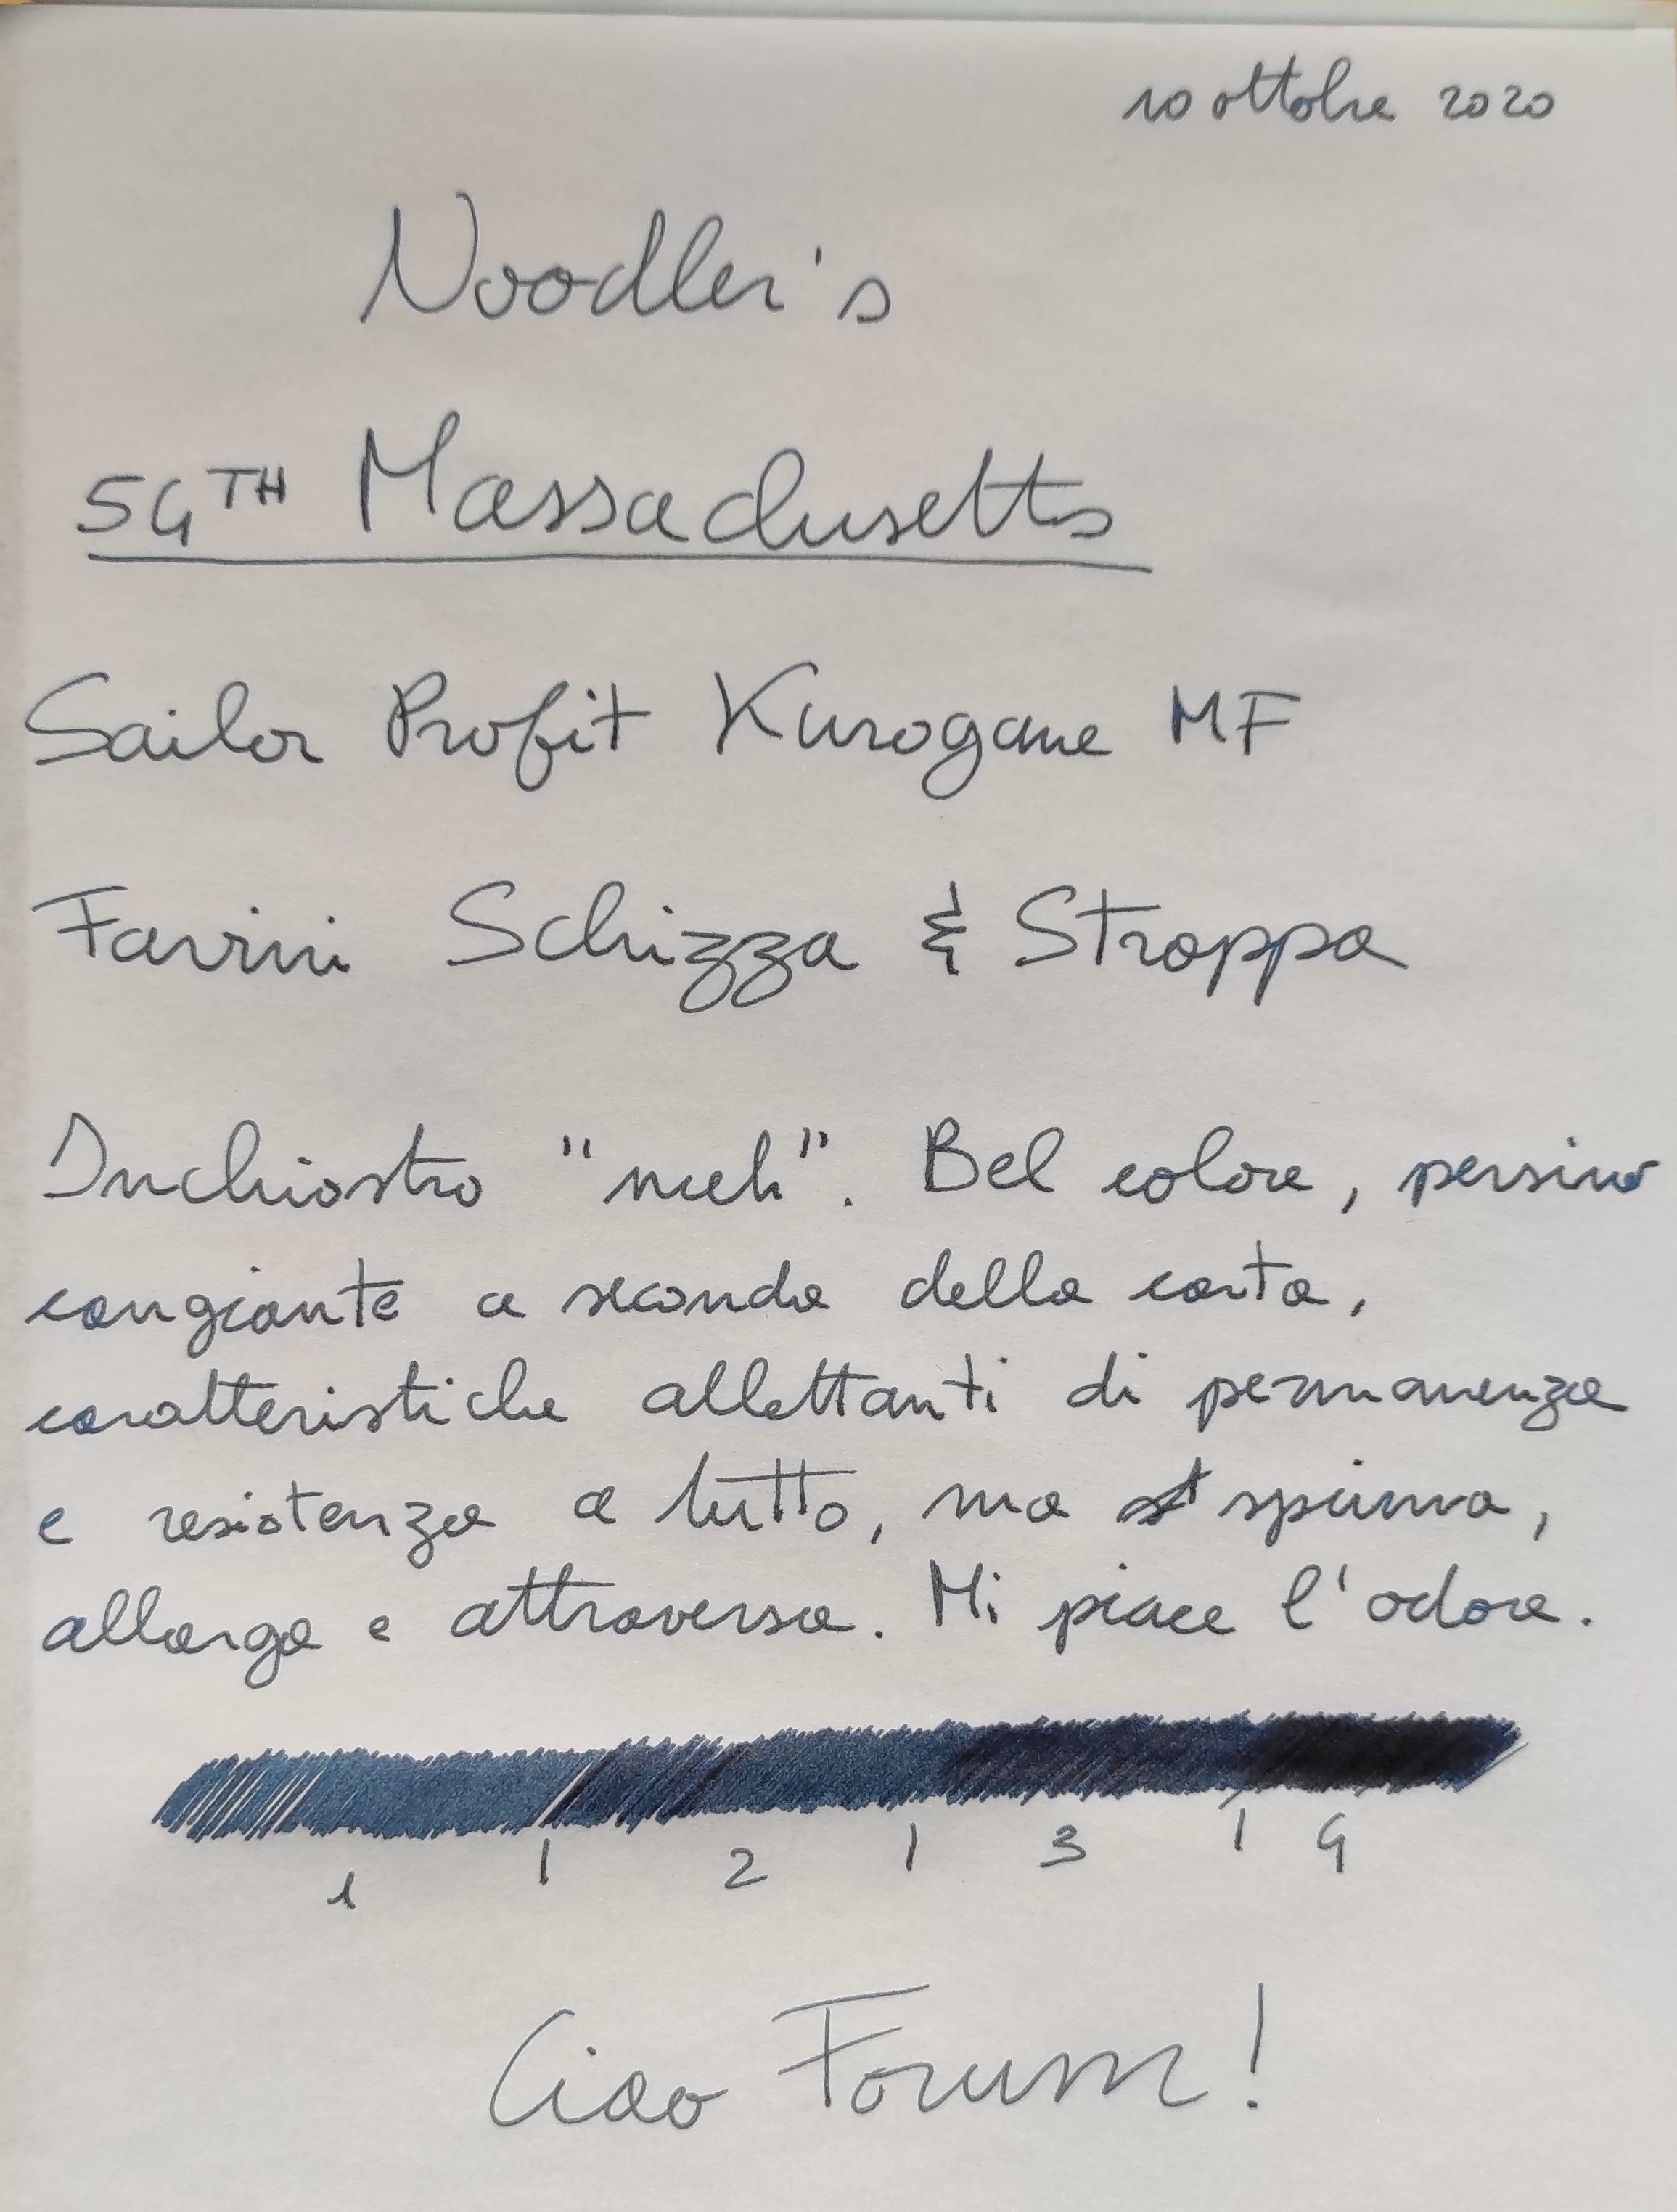 10 ottobre 2020
Noodler's
54TH Massachusetts
Sailor Profit Kurogane MF
Favini Schizza & Strappa
Inchiostro "meh". Bel colore, persino
cangiante a seconda della carta,
caratteristiche allettanti di permanenza
e resistenza a tutto, ma spiuma,
allarga e attraversa. Mi piace l'odore.
1 | 2 | 3 | 4
Ciao Forum!